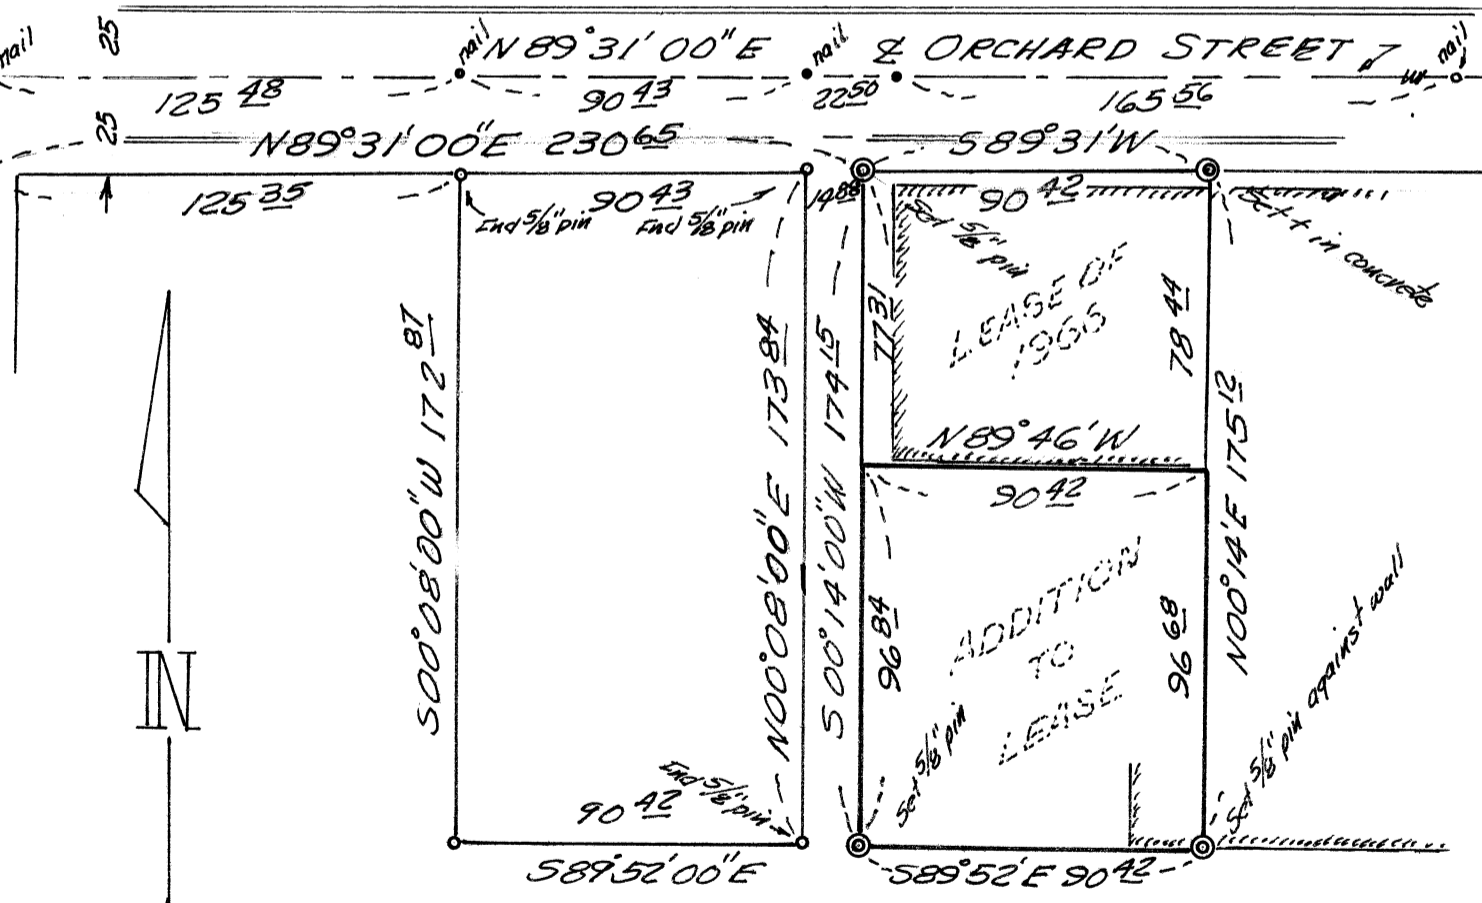 nail
25
nail
N 89°31'00"E
nail
℄ ORCHARD STREET
nail
125 48
90 43
22 50
165 56
25
N89°31'00"E 230 65
S89°31'W
125 35
90 43
14 88
90 42
Fnd 5/8" pin
Fnd 5/8" pin
Set 5/8" pin
Set + in concrete
LEASE OF
1966
77 31
78 44
S00°08'00"W 172 87
N00°08'00"E 173 84
S 00°14'00"W 174 15
N00°14'E 175 12
N89°46'W
90 42
ADDITION
TO
LEASE
96 84
96 68
N
Set 5/8" pin
Set 5/8" pin against wall
Fnd 5/8" pin
90 42
S89°52'00"E
S89°52'E 90 42